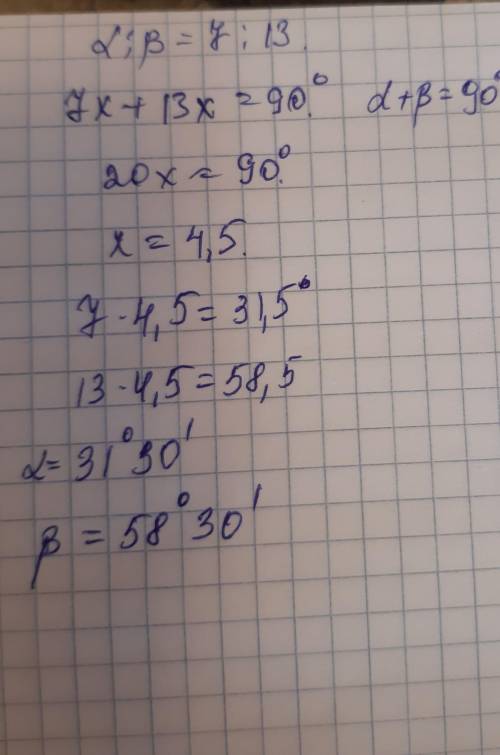 α : β = 7 : 13.
7x + 13x = 90°. α + β = 90°
20x = 90°.
x = 4,5.
7 · 4,5 = 31,5°
13 · 4,5 = 58,5
α = 31° 30'
β = 58° 30'